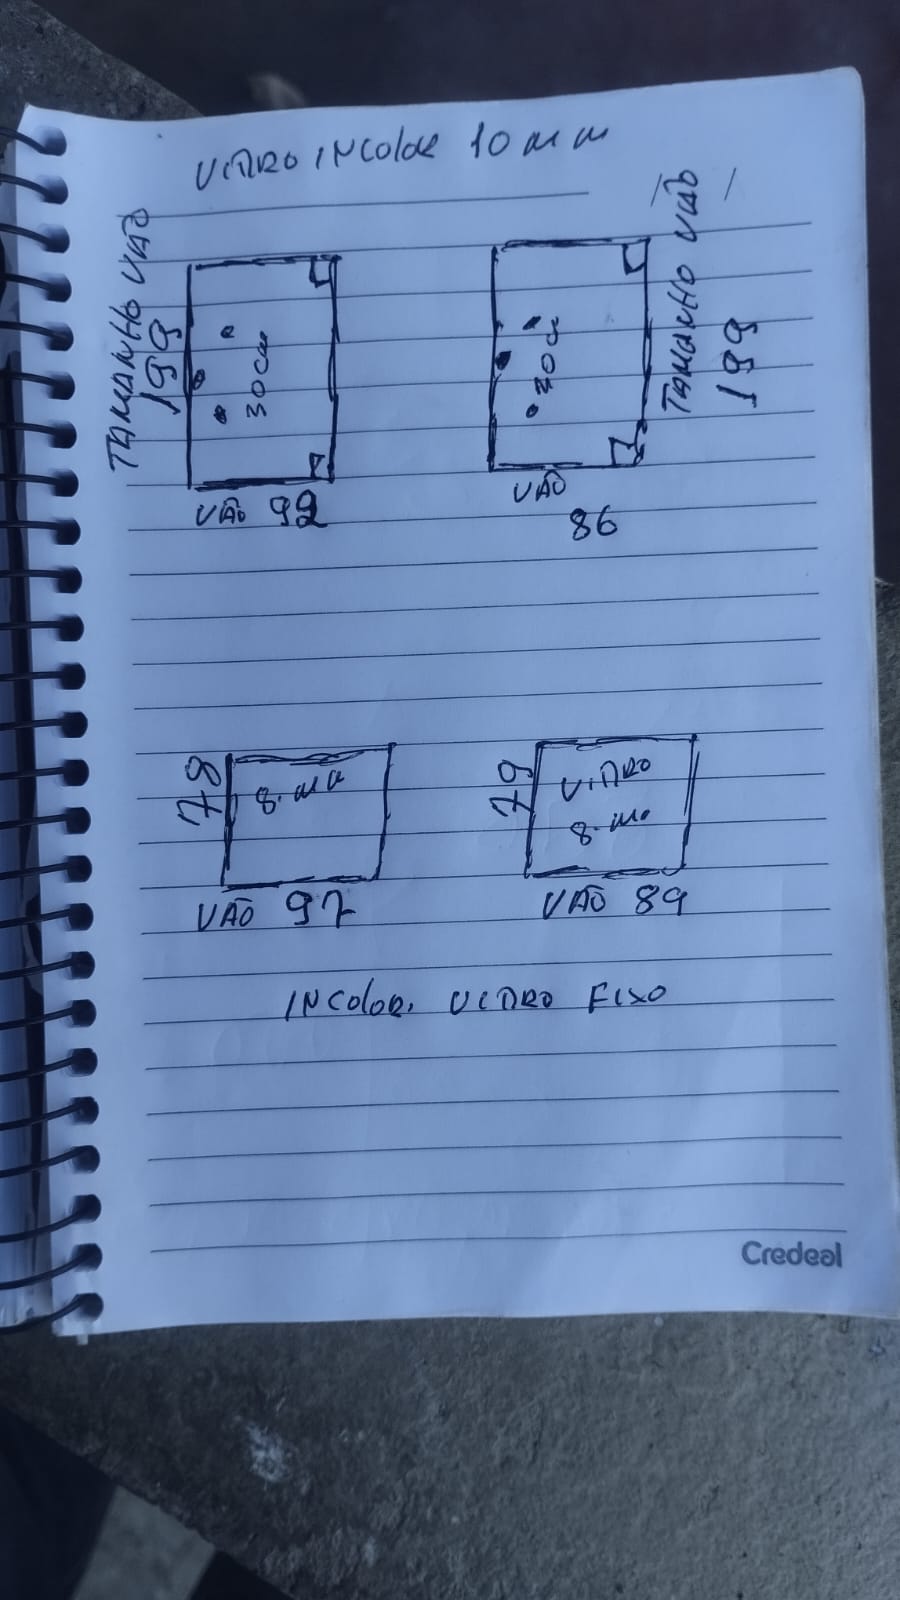 VIDRO INCOLOR 10 mm
TAMANHO VÃO
199
30cm
VÃO 92
30c
TAMANHO VÃO
199
VÃO
86
78
8.mm
VÃO 97
79
VIDRO
8.mm
VÃO 89
INCOLOR. VIDRO FIXO
Credeal